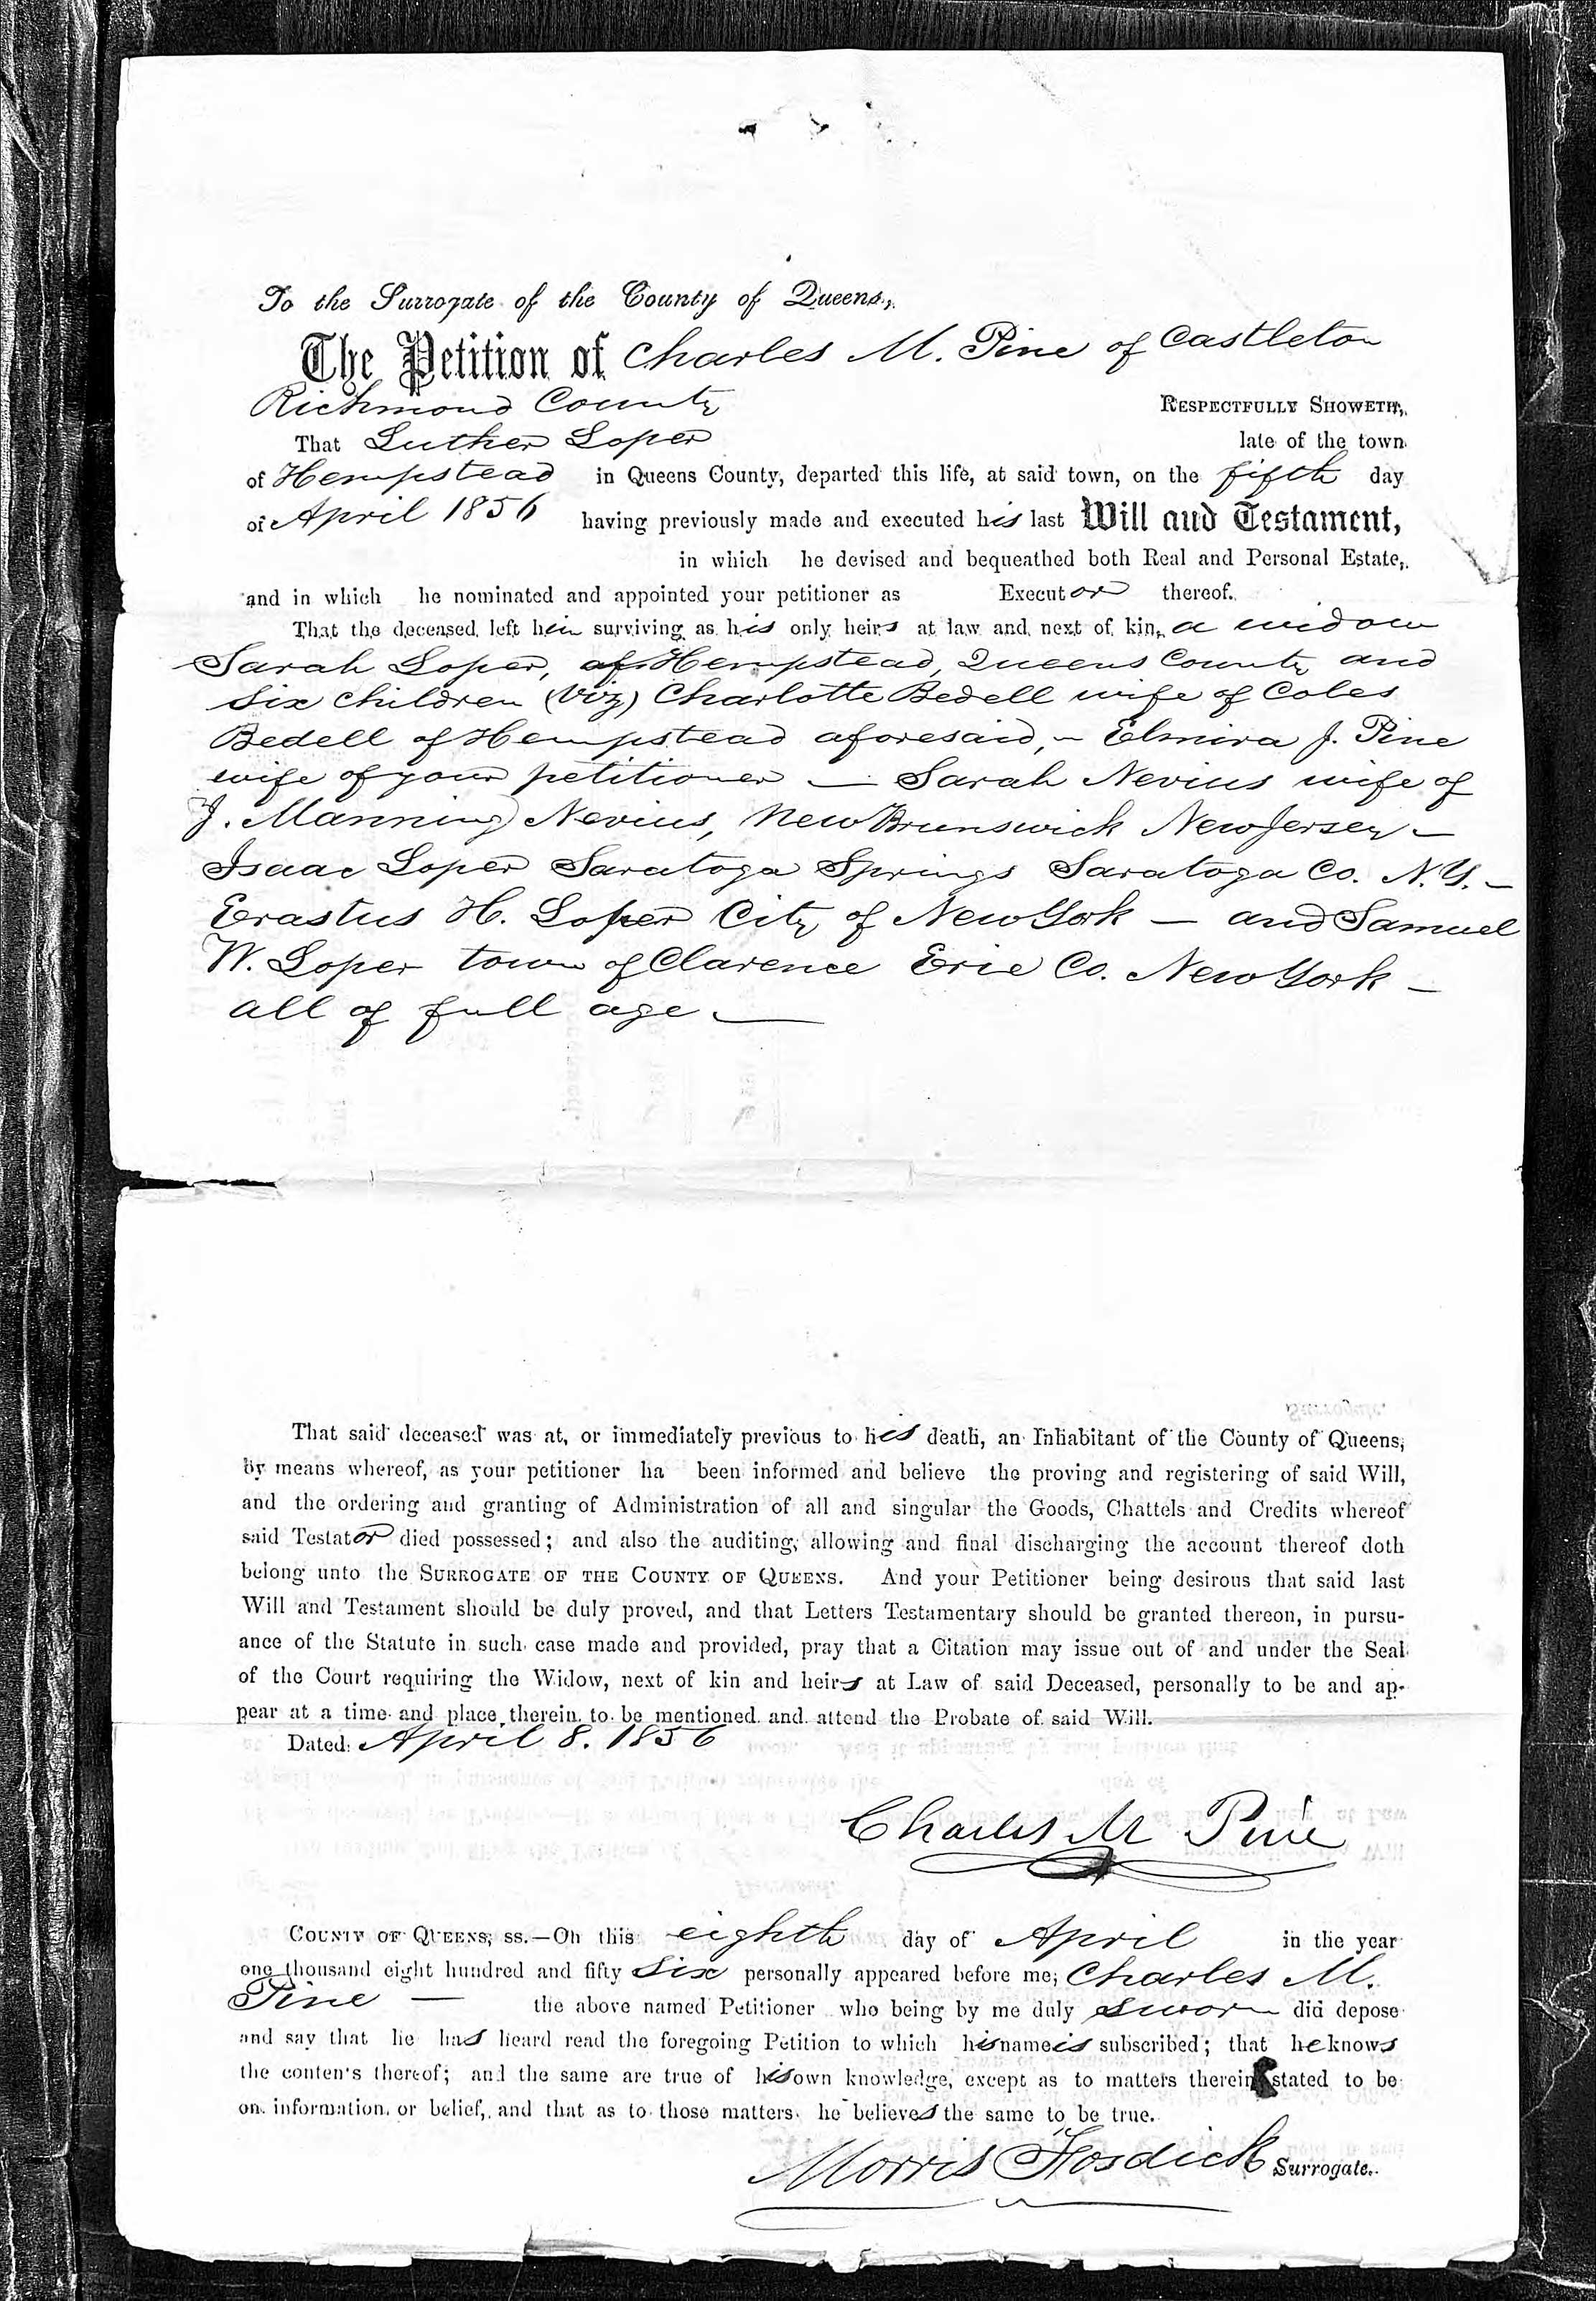 To the Surrogate of the County of Queens,
The Petition of Charles M. Pine of Castleton
Richmond County RESPECTFULLY SHOWETH,
That Luther Loper late of the town
of Hempstead in Queens County, departed this life, at said town, on the fifth day
of April 1856 having previously made and executed his last Will and Testament,
in which he devised and bequeathed both Real and Personal Estate,
and in which he nominated and appointed your petitioner as Executor thereof.
That the deceased left him surviving as his only heirs at law and next of kin, a widow
Sarah Loper, of Hempstead, Queens County and
six children (viz) Charlotte Bedell wife of Coles
Bedell of Hempstead aforesaid, - Elmira J. Pine
wife of your petitioner — Sarah Nevius wife of
J. Manning Nevius, New Brunswick New Jersey -
Isaac Loper Saratoga Springs Saratoga Co. N.Y. -
Erastus H. Loper City of New York — and Samuel
W. Loper town of Clarence Erie Co. New York -
all of full age —
That said deceased was at, or immediately previous to his death, an Inhabitant of the County of Queens,
by means whereof, as your petitioner ha been informed and believe the proving and registering of said Will,
and the ordering and granting of Administration of all and singular the Goods, Chattels and Credits whereof
said Testator died possessed; and also the auditing, allowing and final discharging the account thereof doth
belong unto the SURROGATE OF THE COUNTY OF QUEENS. And your Petitioner being desirous that said last
Will and Testament should be duly proved, and that Letters Testamentary should be granted thereon, in pursu-
ance of the Statute in such case made and provided, pray that a Citation may issue out of and under the Seal
of the Court requiring the Widow, next of kin and heirs at Law of said Deceased, personally to be and ap-
pear at a time and place therein to be mentioned and attend the Probate of said Will.
Dated: April 8. 1856
Charles M Pine
COUNTY OF QUEENS, ss.—On this eighth day of April in the year
one thousand eight hundred and fifty six personally appeared before me, Charles M.
Pine — the above named Petitioner who being by me duly sworn did depose
and say that he has heard read the foregoing Petition to which his name is subscribed; that he knows
the conten's thereof; and the same are true of his own knowledge, except as to matters therein stated to be
on information or belief, and that as to those matters he believes the same to be true.
Morris Fosdick Surrogate.